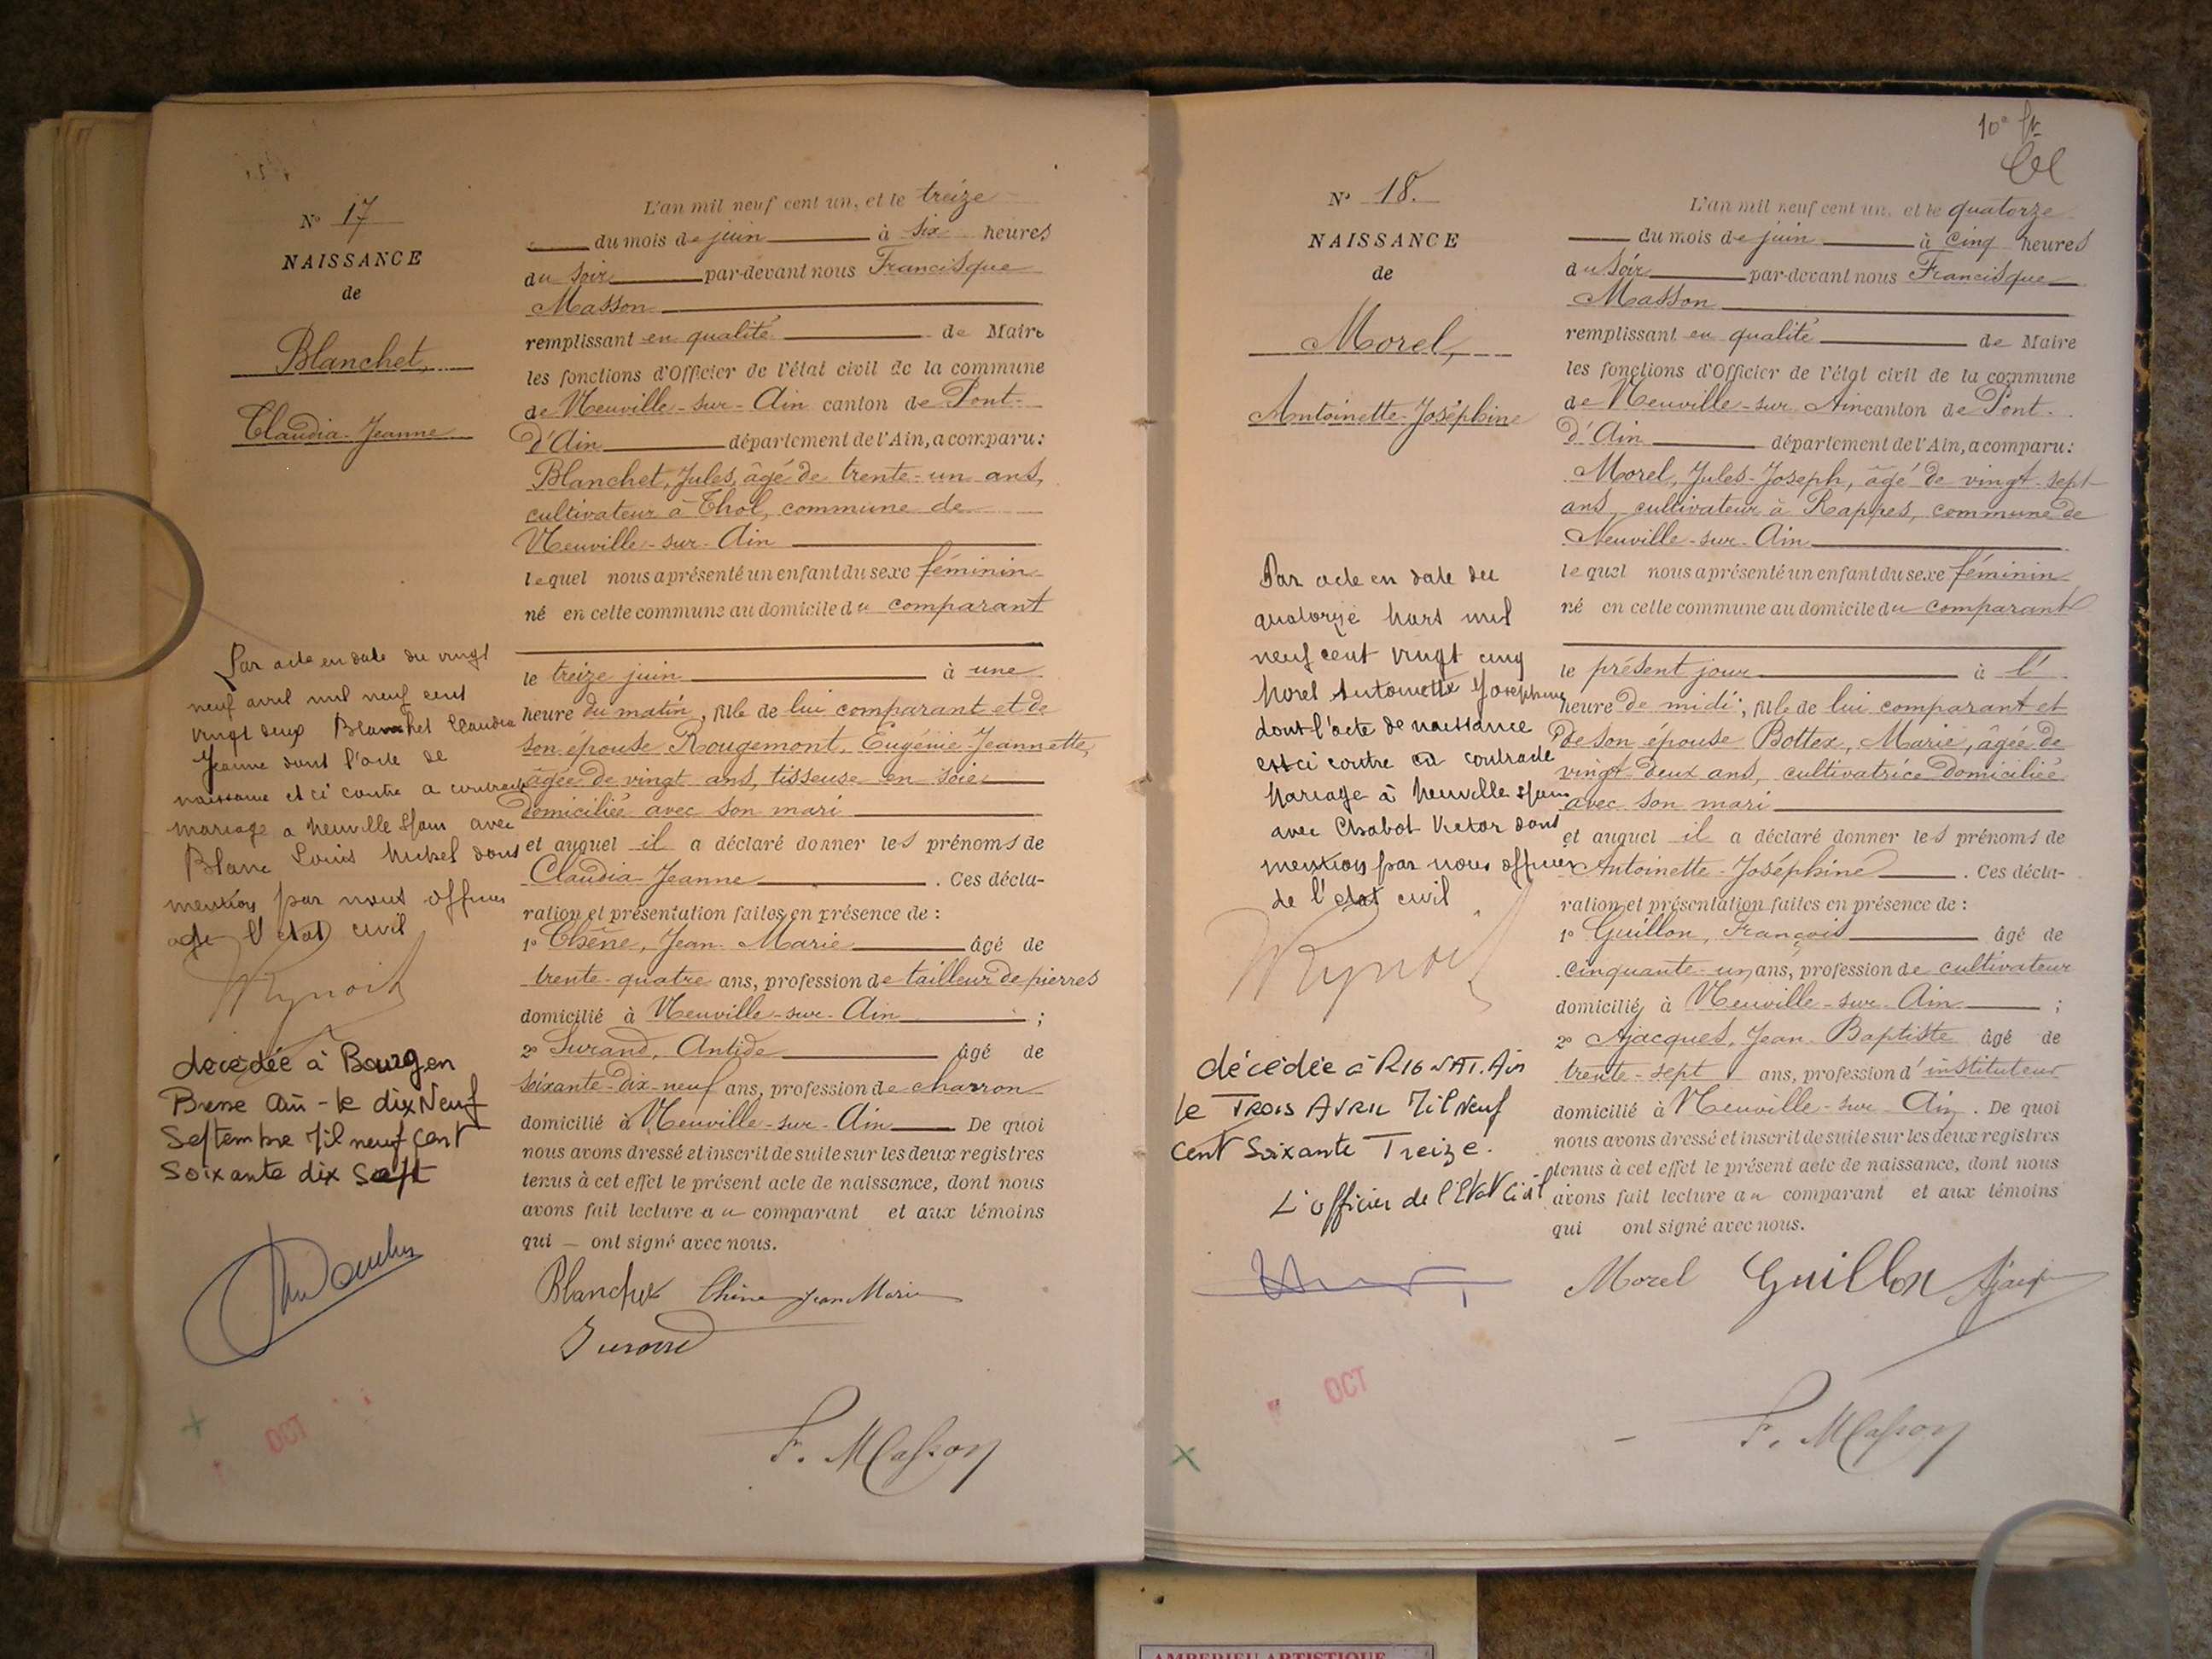 N° 17
NAISSANCE
de
Blanchet,
Claudia-Jeanne
Par acte en date du vingt
neuf avril mil neuf cent
vingt deux Blanchet Claudia
Jeanne dont l'acte de
naissance est ci contre a contracté
mariage a Neuville s/ain avec
Blanc Louis Michel dont
mention par nous officier
de l'etat civil
décédée à Bourg en
Bresse Ain - le dix Neuf
Septembre Mil neuf Cent
Soixante dix Sept
OCT
L'an mil neuf cent un, et le treize
du mois de juin à six heures
du soir par-devant nous Francisque
Masson
remplissant en qualité de Maire
les fonctions d'Officier de l'état civil de la commune
de Neuville-sur-Ain canton de Pont-
d'Ain département de l'Ain, a comparu:
Blanchet, Jules, âgé de trente-un ans,
cultivateur à Thol, commune de
Neuville-sur-Ain
lequel nous a présenté un enfant du sexe féminin
né en cette commune au domicile du comparant
le treize juin à une
heure du matin, fille de lui comparant et de
son épouse Rougemont, Eugénie-Jeannette,
âgée de vingt ans, tisseuse en soie
domiciliée avec son mari
et auquel il a déclaré donner les prénoms de
Claudia-Jeanne. Ces décla-
ration et présentation faites en présence de :
1° Chêne, Jean-Marie âgé de
trente-quatre ans, profession de tailleur de pierres
domicilié à Neuville-sur-Ain ;
2° Durand, Antide âgé de
soixante-dix-neuf ans, profession de charron
domicilié à Neuville-sur-Ain De quoi
nous avons dressé et inscrit de suite sur les deux registres
tenus à cet effet le présent acte de naissance, dont nous
avons fait lecture au comparant et aux témoins
qui — ont signé avec nous.
Blanchet Chêne Jean Marie
Durand
F. Masson
10e ft
N° 18.
NAISSANCE
de
Morel,
Antoinette-Joséphine
Par acte en date du
quatorze Mars mil
neuf cent vingt cinq
Morel Antoinette Josephine
dont l'acte de naissance
est ci contre a contracté
Mariage à Neuville s/ain
avec Chabot Victor dont
mention par nous officier
de l'etat civil
décédée à RIGNAT. Ain
le TROIS AVRIL Mil Neuf
Cent Soixante Treize.
L'officier de l'Etat Civil
OCT
L'an mil neuf cent un, et le quatorze
du mois de juin à cinq heures
du soir par-devant nous Francisque
Masson
remplissant en qualité de Maire
les fonctions d'Officier de l'état civil de la commune
de Neuville-sur-Ain canton de Pont-
d'Ain département de l'Ain, a comparu:
Morel, Jules-Joseph, âgé de vingt-sept
ans, cultivateur à Rappes, commune de
Neuville-sur-Ain
lequel nous a présenté un enfant du sexe féminin
né en cette commune au domicile du comparant
le présent jour à l'
heure de midi, fille de lui comparant et
de son épouse Bottex, Marie, âgée de
vingt-deux ans, cultivatrice domiciliée
avec son mari
et auquel il a déclaré donner les prénoms de
Antoinette-Joséphine. Ces décla-
ration et présentation faites en présence de :
1° Guillon, François âgé de
cinquante-un ans, profession de cultivateur
domicilié à Neuville-sur-Ain ;
2° Ajacques, Jean-Baptiste âgé de
trente-sept ans, profession d'instituteur
domicilié à Neuville-sur-Ain. De quoi
nous avons dressé et inscrit de suite sur les deux registres
tenus à cet effet le présent acte de naissance, dont nous
avons fait lecture au comparant et aux témoins
qui ont signé avec nous.
Morel Guillon
F. Masson
AMBERIEU ARTISTIQUE